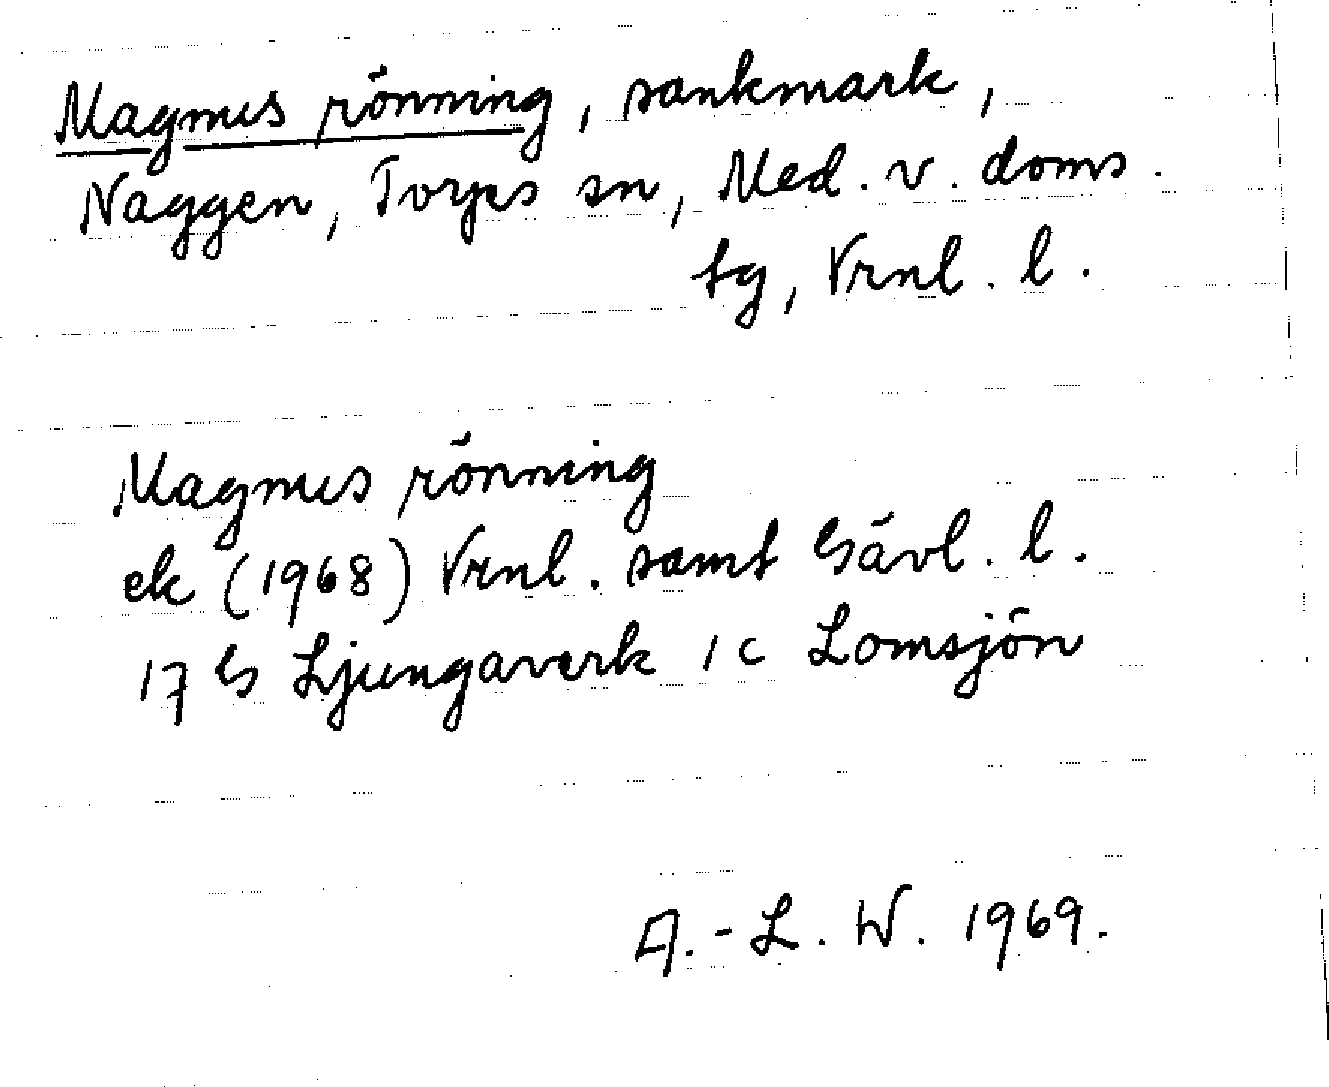 Magnus rönning, sankmark,
Naggen, Torps sn, Med. v. doms.
tg, Vrnl. l.
Magnus rönning
ek (1968) Vrnl. samt Gävl. l.
17 G Ljungaverk 1 c Lomsjön
A.-L. W. 1969.